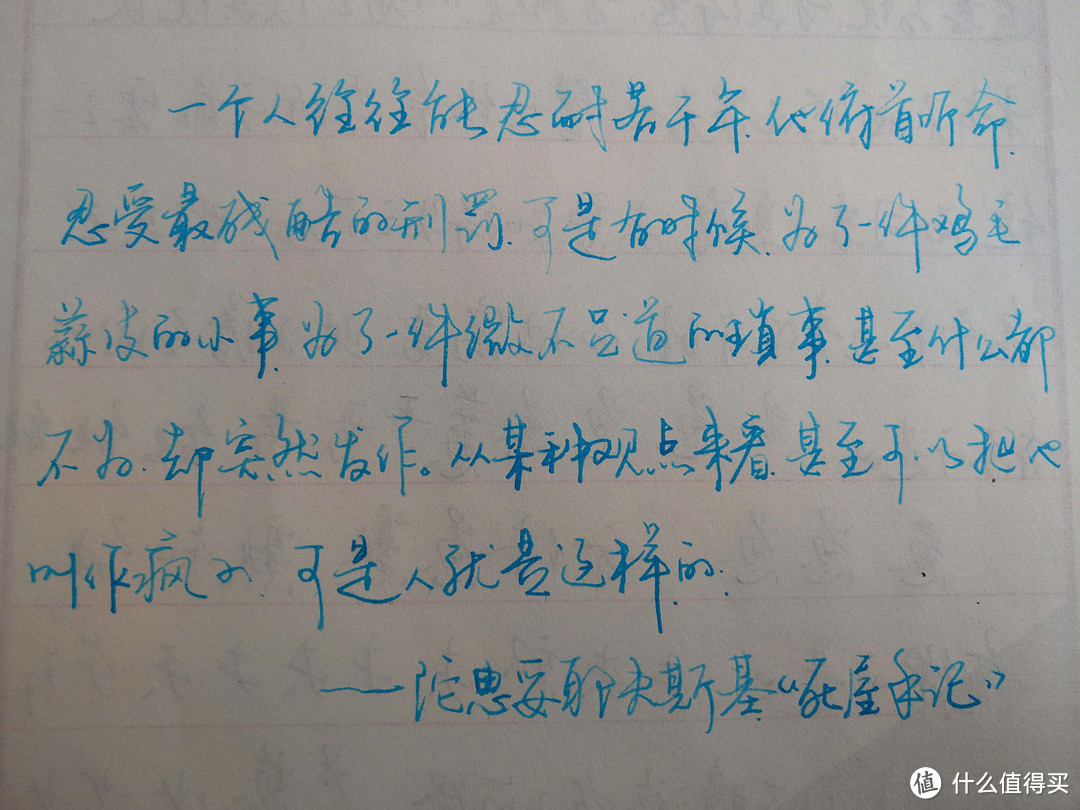 一个人往往能忍耐若干年.他俯首听命.
忍受最残酷的刑罚.可是有时候.为了一件鸡毛
蒜皮的小事.为了一件微不足道的琐事.甚至什么都
不为.却突然发作。从某种观点来看.甚至可以把他
叫作疯子.可是人就是这样的.
——陀思妥耶夫斯基“死屋手记”
值 什么值得买